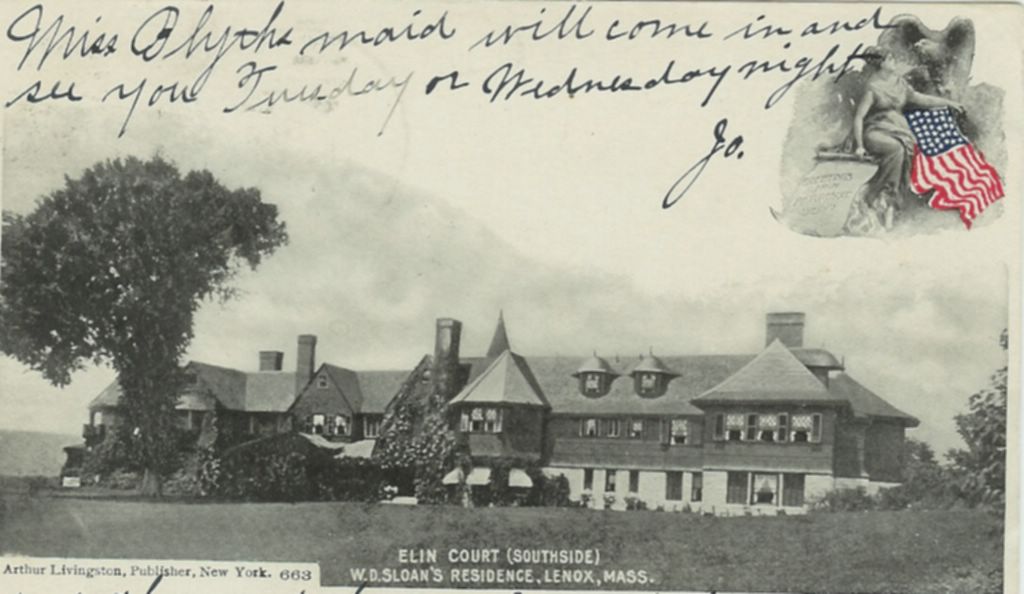 Miss Blyths maid will come in and
see you Tuesday or Wednesday night
Jo.
ELIN COURT (SOUTHSIDE)
W.D.SLOAN'S RESIDENCE, LENOX, MASS.
Arthur Livingston, Publisher, New York. 663